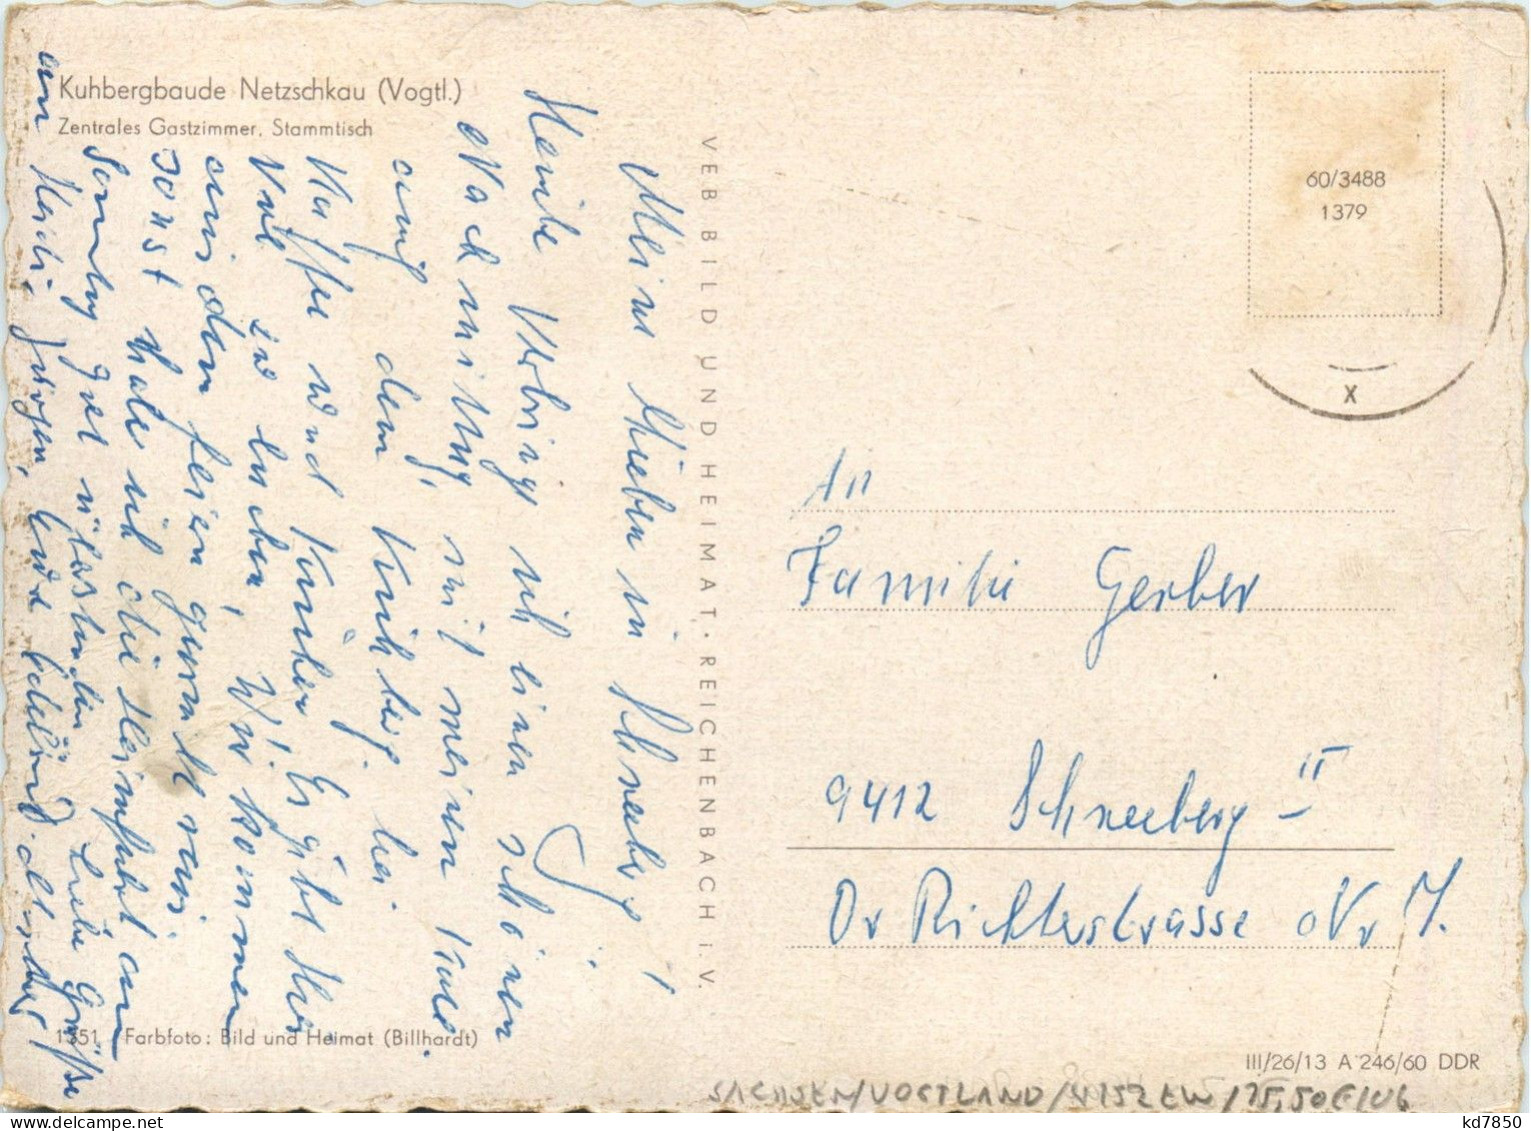 Kuhbergbaude Netzschkau (Vogtl.)
Zentrales Gastzimmer, Stammtisch
Meine Lieben in Schneeberg!
Heute Verbring ich einen schönen
Nachmittag, mit meinen
auf dem Kuhberg. bei
Kaffee und Kuchen! Es gibt hier
viel zu Wir kommen
aus dem feiern garnicht raus
sonst habe ich die Heimfahrt am
Sonntag gut überstanden. Liebe Grüße
an Heidi, Jürgen,
VEB BILD UND HEIMAT · REICHENBACH i. V.
60/3488
1379
X
An
Familie Gerber
9412 Schneeberg - II
Dr Richterstrasse Nr 7.
1351 Farbfoto: Bild und Heimat (Billhardt)
III/26/13 A 246/60 DDR
SACHSEN/VOGTLAND/
kd7850